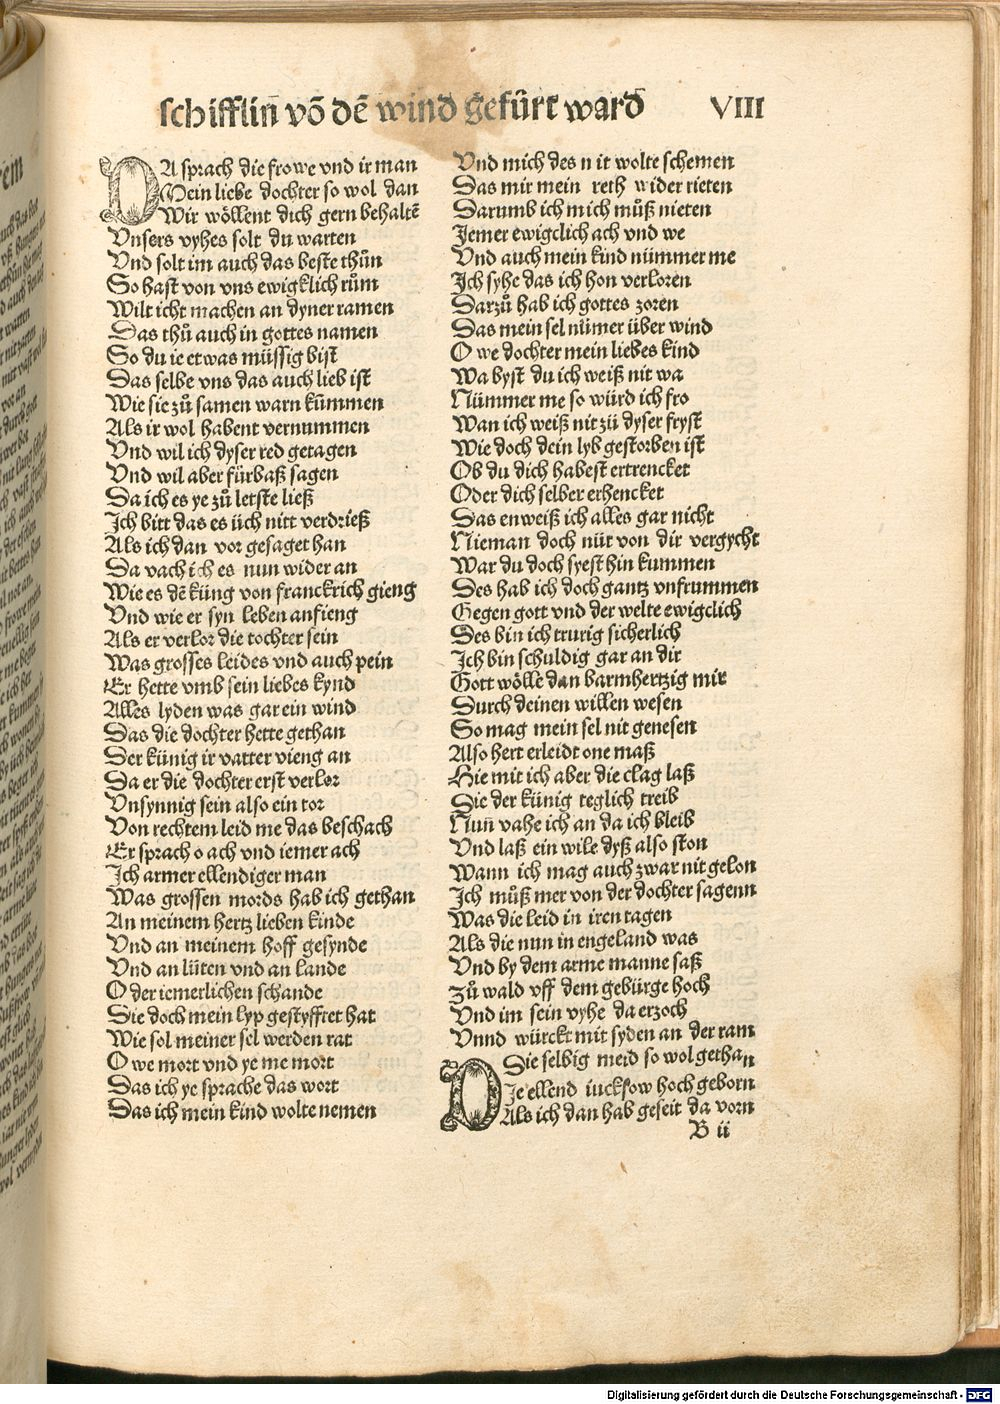 schifflin̄ võ dẽ wind gefu̇rt ward VIII
DA sprach die frowe vnd ir man
Mein liebe dochter so wol dan
Wir wöllent dich gern behaltẽ
Vnsers vyhes solt du warten
Vnd solt im auch das beste thůn
So hast von vns ewigklich rům
Wilt icht machen an dyner ramen
Das thů auch in gottes namen
So du ie etwas müssig bist
Das selbe vns das auch lieb ist
Wie sie zů samen warn kummen
Als ir wol habent vernummen
Vnd wil ich dyser red getagen
Vnd wil aber fürbaß sagen
Da ich es ye zů letste ließ
Ich bitt das es üch nitt verdrieß
Als ich dan vor gesaget han
Da vach ich es nun wider an
Wie es dẽ küng von franckrich gieng
Vnd wie er syn leben anfieng
Als er verlor die tochter sein
Was grosses leides vnd auch pein
Er hette vmb sein liebes kynd
Alles lyden was gar ein wind
Das die dochter hette gethan
Der künig ir vatter vieng an
Da er die dochter erst verlor
Vnsynnig sein also ein tor
Von rechtem leid me das beschach
Er sprach o ach vnd iemer ach
Ich armer ellendiger man
Was grossen mords hab ich gethan
An meinem hertz lieben kinde
Vnd an meinem hoff gesynde
Vnd an lüten vnd an lande
O der iemerlichen schande
Die doch mein lyp gestyfftet hat
Wie sol meiner sel werden rat
O we mort vnd ye me mort
Das ich ye sprache das wort
Das ich mein kind wolte nemen
Vnd mich des n it wolte schemen
Das mir mein reth wider rieten
Darumb ich mich můß nieten
Jemer ewigclich ach vnd we
Vnd auch mein kind nümmer me
Ich syhe das ich hon verloren
Darzů hab ich gottes zoren
Das mein sel nümer über wind
O we dochter mein liebes kind
Wa byst du ich weiß nit wa
Nümmer me so würd ich fro
Wan ich weiß nit zü dyser fryst
Wie doch dein lyb gestorben ist
Ob du dich habest ertrencket
Oder dich selber erhencket
Das enweiß ich alles gar nicht
Nieman doch nür von dir vergycht
War du doch syest hin kummen
Des hab ich doch gantz vnfrummen
Gegen gott vnd der welte ewigclich
Des bin ich trurig sicherlich
Ich bin schuldig gar an dir
Gott wölle dan barmhertzig mir
Durch deinen willen wesen
So mag mein sel nit genesen
Also hert erleidt one maß
Hie mit ich aber die clag laß
Die der künig teglich treib
Nun̄ vahe ich an da ich bleib
Vnd laß ein wile dyß also ston
Wann ich mag auch zwar nit gelon
Ich můß mer von der dochter sagenn
Was die leid in iren tagen
Als die nun in engeland was
Vnd by dem arme manne saß
Zů wald vff dem gebürge hoch
Vnd im sein vyhe da erzoch
Vnnd würckt mit syden an der ram
DDie selbig meid so wol gethan
Die ellend iuckfow hoch geborn
Als ich dan hab geseit da vorn
B ii
Digitalisierung gefördert durch die Deutsche Forschungsgemeinschaft - DFG